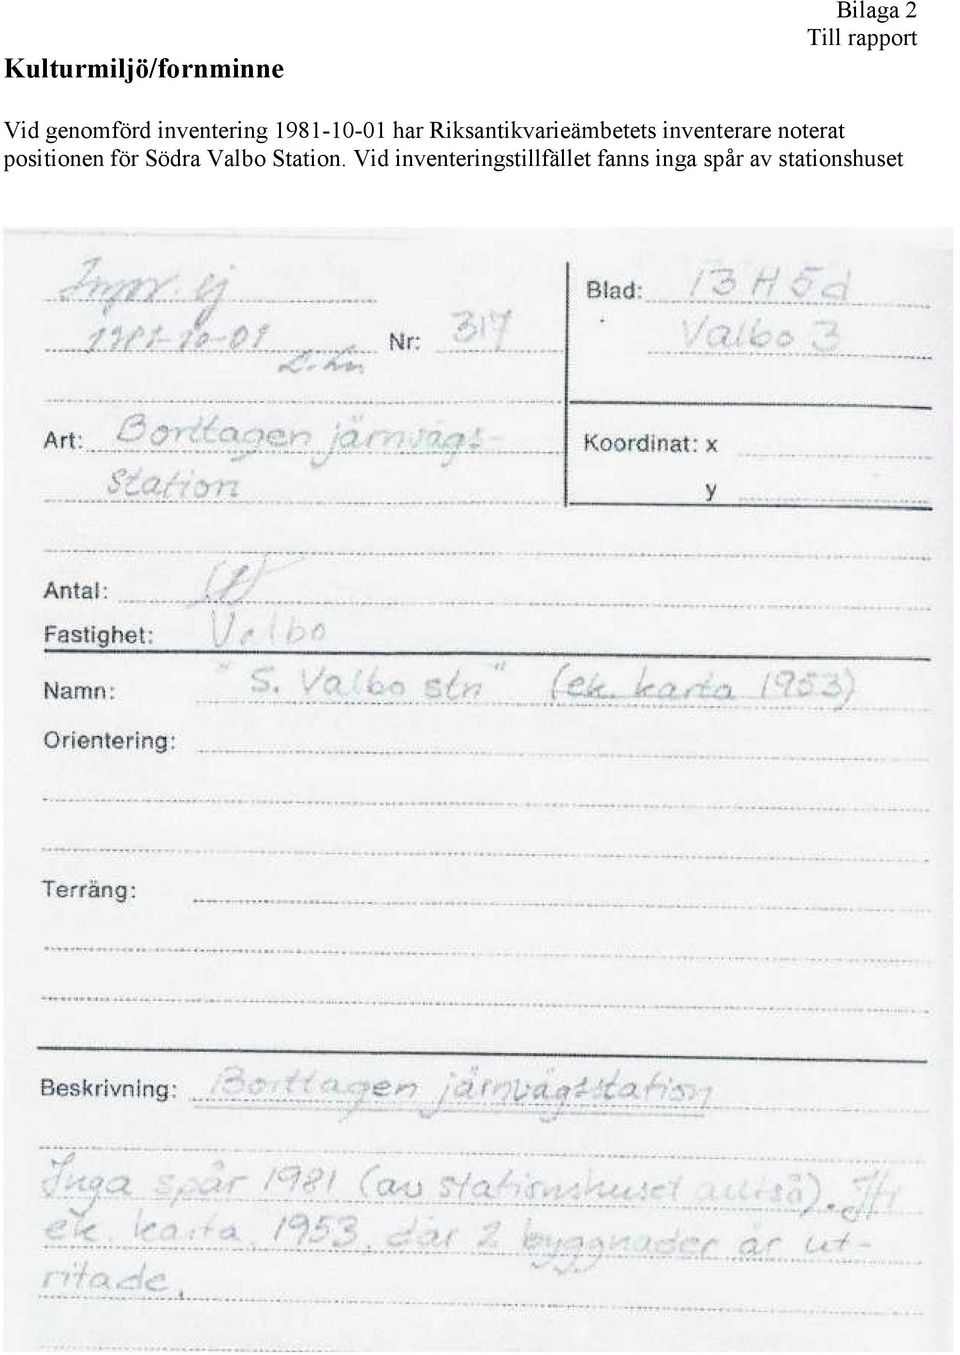 Bilaga 2
Till rapport
Kulturmiljö/fornminne
Vid genomförd inventering 1981-10-01 har Riksantikvarieämbetets inventerare noterat
positionen för Södra Valbo Station. Vid inventeringstillfället fanns inga spår av stationshuset
ej
Blad: 13 H 5d
1981-10-01 Nr: 317 Valbo 3
Art: Borttagen järnvägs-
station
Koordinat: x
y
Antal:
Fastighet: Valbo
Namn: "S. Valbo stn" (ek. karta 1953)
Orientering:
Terräng:
Beskrivning: Borttagen järnvägsstation
Inga spår 1981 (av stationshuset alltså). Jfr
ek. karta, 1953, där 2 byggnader är ut-
ritade.